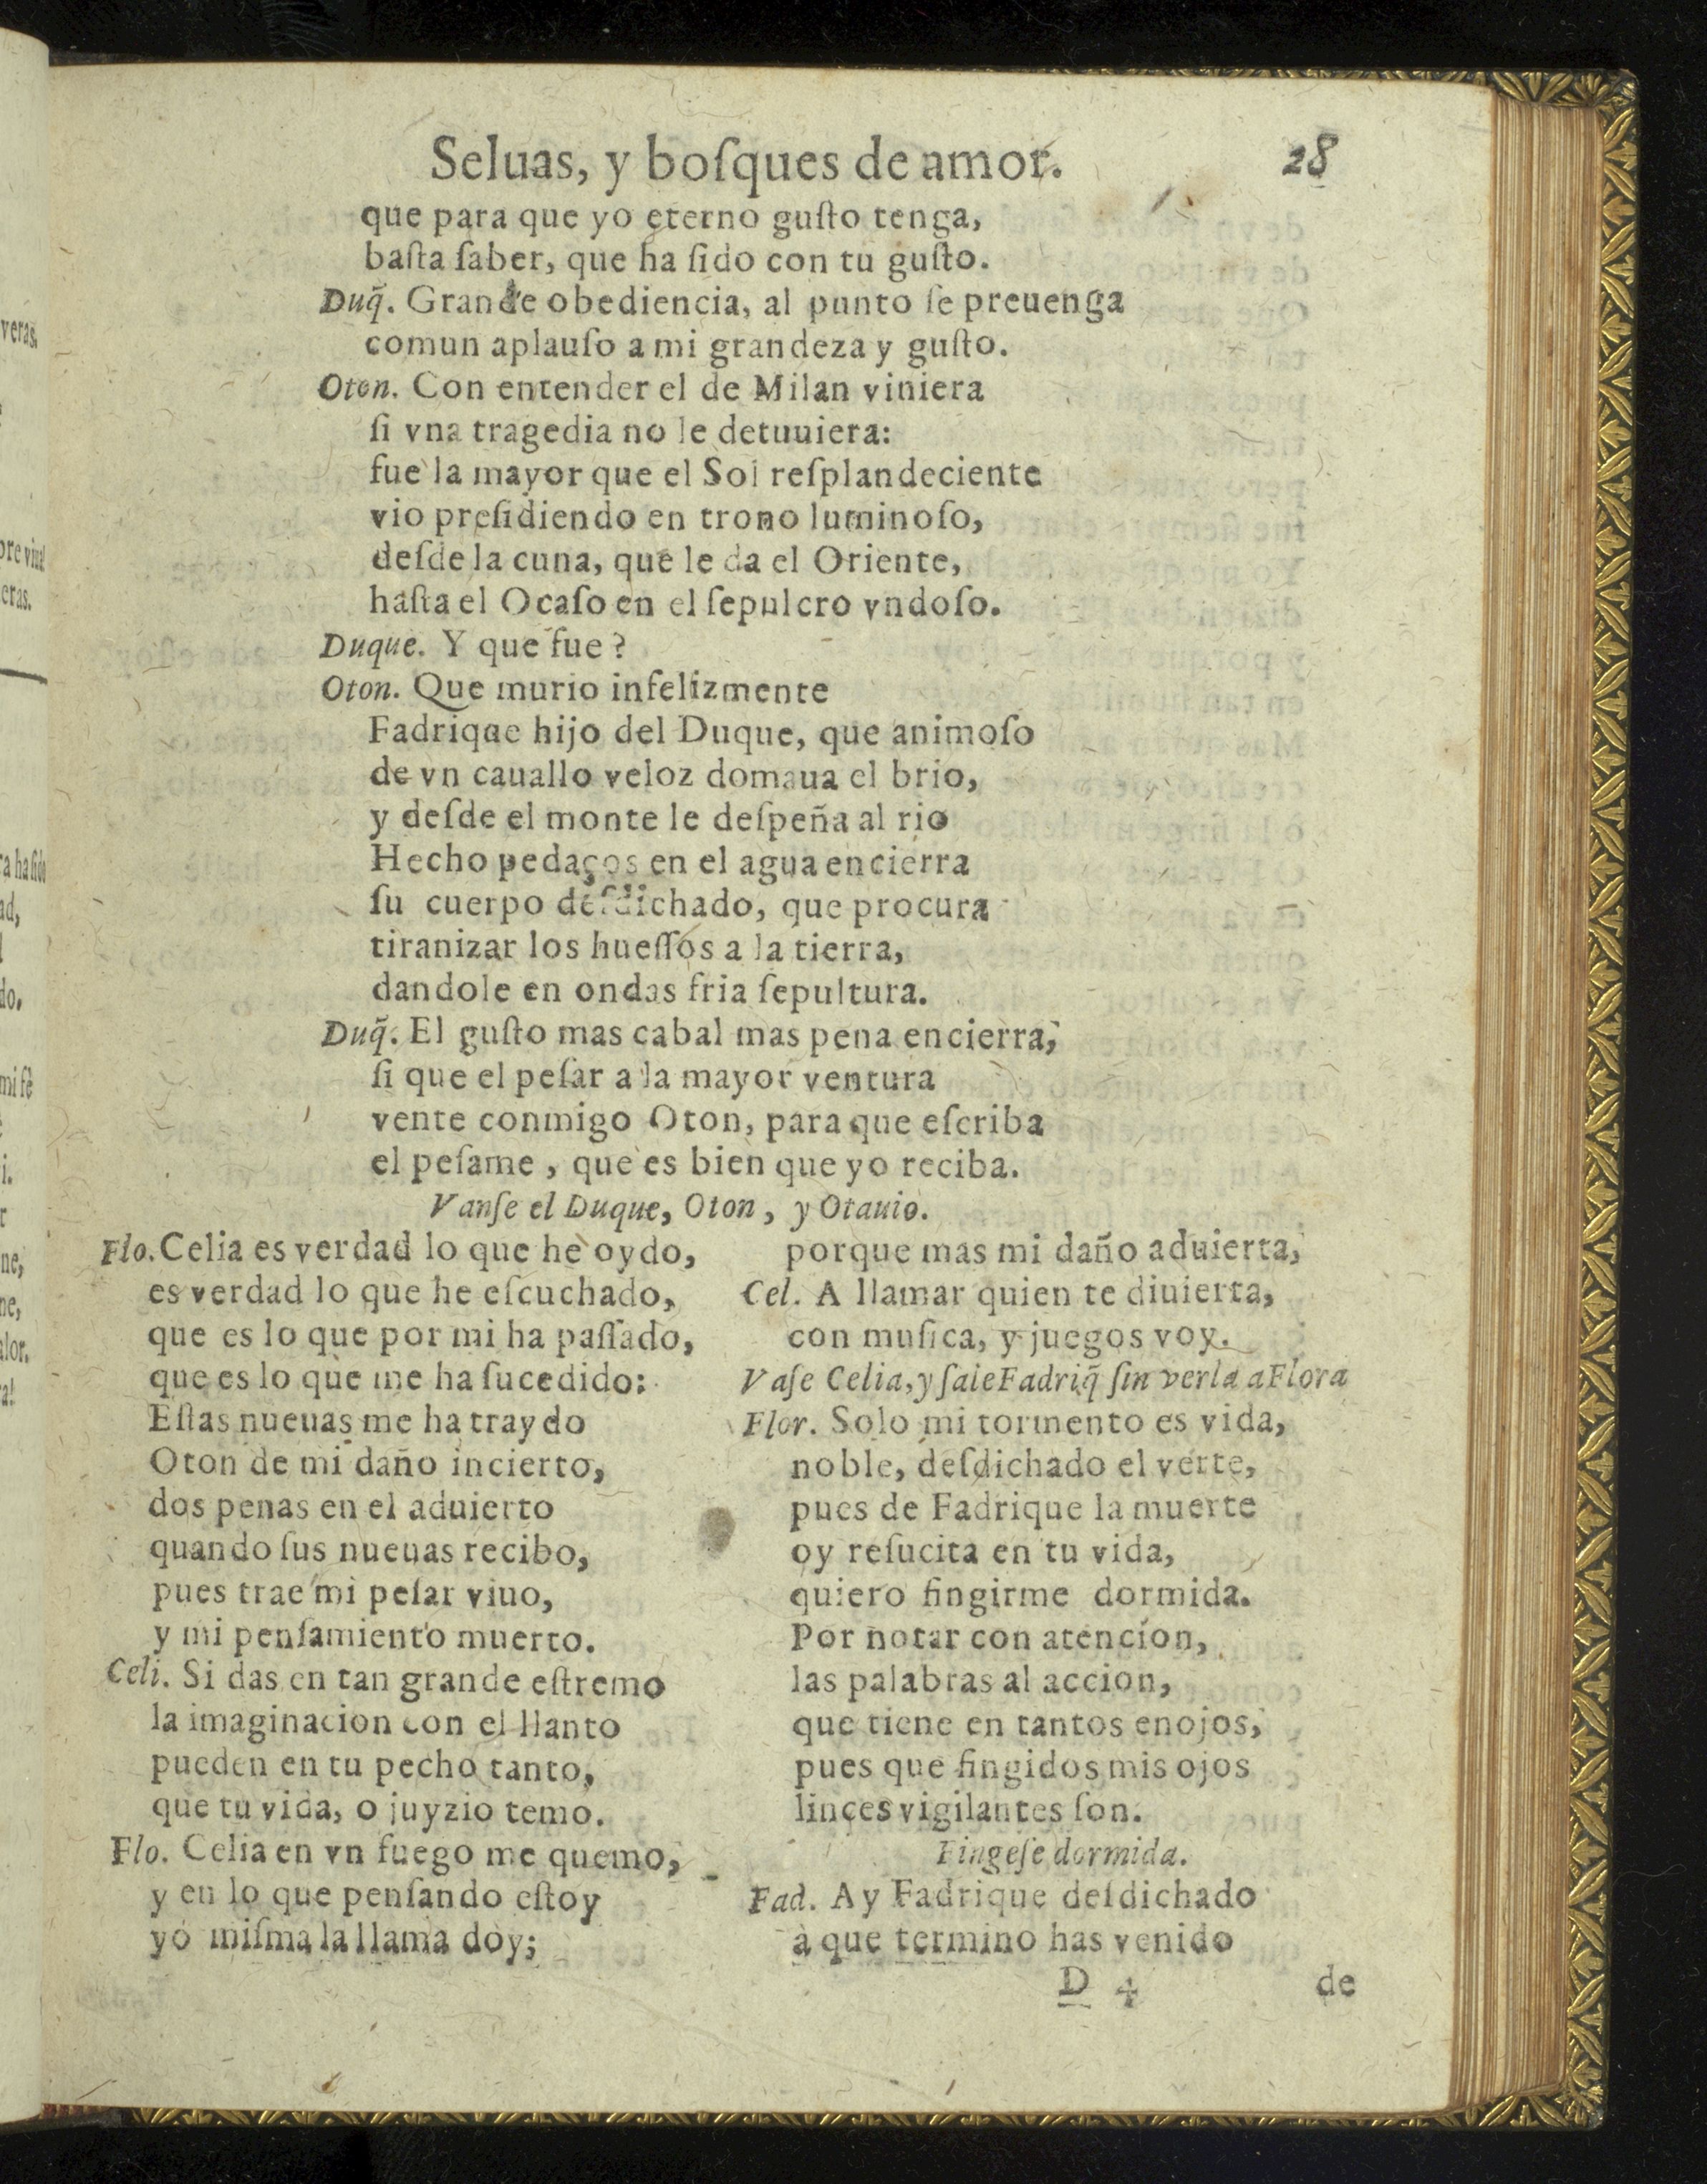 Seluas, y boſques de amor. 28
que para que yo eterno guſto tenga,
baſta ſaber, que ha ſido con tu guſto.
Duq̃. Grande obediencia, al punto ſe preuenga
comun aplauſo a mi grandeza y guſto.
Oton. Con entender el de Milan viniera
ſi vna tragedia no le detuuiera:
fue la mayor que el Sol reſplandeciente
vio preſidiendo en trono luminoſo,
deſde la cuna, que le da el Oriente,
haſta el Ocaſo en el ſepulcro vndoſo.
Duque. Y que fue?
Oton. Que murio infelizmente
Fadrique hijo del Duque, que animoſo
de vn cauallo veloz domaua el brio,
y deſde el monte le deſpeña al rio
Hecho pedaços en el agua encierra
ſu cuerpo deſdichado, que procura
tiranizar los hueſſos a la tierra,
dandole en ondas fria ſepultura.
Duq̃. El guſto mas cabal mas pena encierra,
ſi que el peſar a la mayor ventura
vente conmigo Oton, para que eſcriba
el peſame, que es bien que yo reciba.
Vanſe el Duque, Oton, y Otauio.
Flo. Celia es verdad lo que he oydo,
es verdad lo que he eſcuchado,
que es lo que por mi ha paſſado,
que es lo que me ha ſucedido:
Eſtas nueuas me ha traydo
Oton de mi daño incierto,
dos penas en el aduierto
quando ſus nueuas recibo,
pues trae mi peſar viuo,
y mi penſamiento muerto.
Celi. Si das en tan grande eſtremo
la imaginacion con el llanto
pueden en tu pecho tanto,
que tu vida, o juyzio temo.
Flo. Celia en vn fuego me quemo,
y en lo que penſando eſtoy
yo miſma la llama doy;
porque mas mi daño aduierta,
Cel. A llamar quien te diuierta,
con muſica, y juegos voy.
Vaſe Celia, y ſale Fadriq̃ ſin verla a Flora
Flor. Solo mi tormento es vida,
noble, deſdichado el verte,
pues de Fadrique la muerte
oy reſucita en tu vida,
quiero fingirme dormida.
Por notar con atencion,
las palabras al accion,
que tiene en tantos enojos,
pues que fingidos mis ojos
linces vigilantes ſon.
Fingeſe dormida.
Fad. Ay Fadrique deſdichado
à que termino has venido
D 4 de